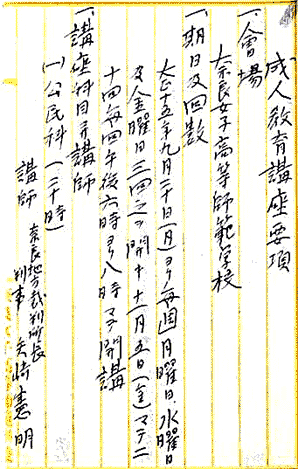 成人教育講座要項
一、會場
奈良女子高等師範学校
一、期日及回数
大正十五年九月二十日(月)ヨリ毎週月曜日、水曜日
及金曜日三回之ヲ開キ十一月五日(金)マデ二
十回毎回午後六時ヨリ八時マデ開講
一、講座科目并講師
(一)公民科(二十時)
講師 奈良地方裁判所長
判事 矢崎憲明